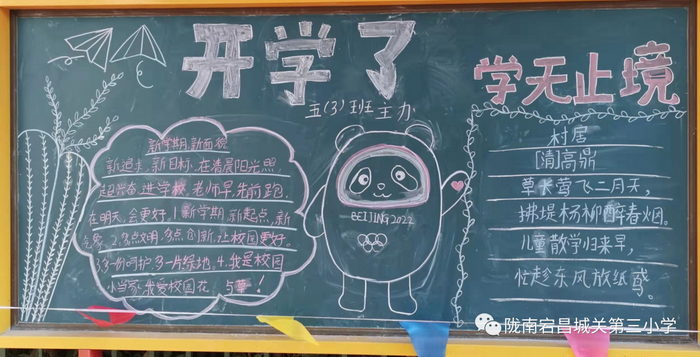 开学了
五(3)班主办
新学期,新面貌
新追求,新目标,在清晨阳光照
起兴奋,进学校,老师早,先前跑,
在明天,会更好,1.新学期,新起点,新
气象.2.多点文明,多点创新,让校园更好。
3.多一份呵护,多一片绿地,4.我是校园
小当家,我爱校园花
BEIJING 2022
学无止境
村居
[清]高鼎
草长莺飞二月天,
拂堤杨柳醉春烟。
儿童散学归来早,
忙趁东风放纸鸢。
陇南宕昌城关第三小学